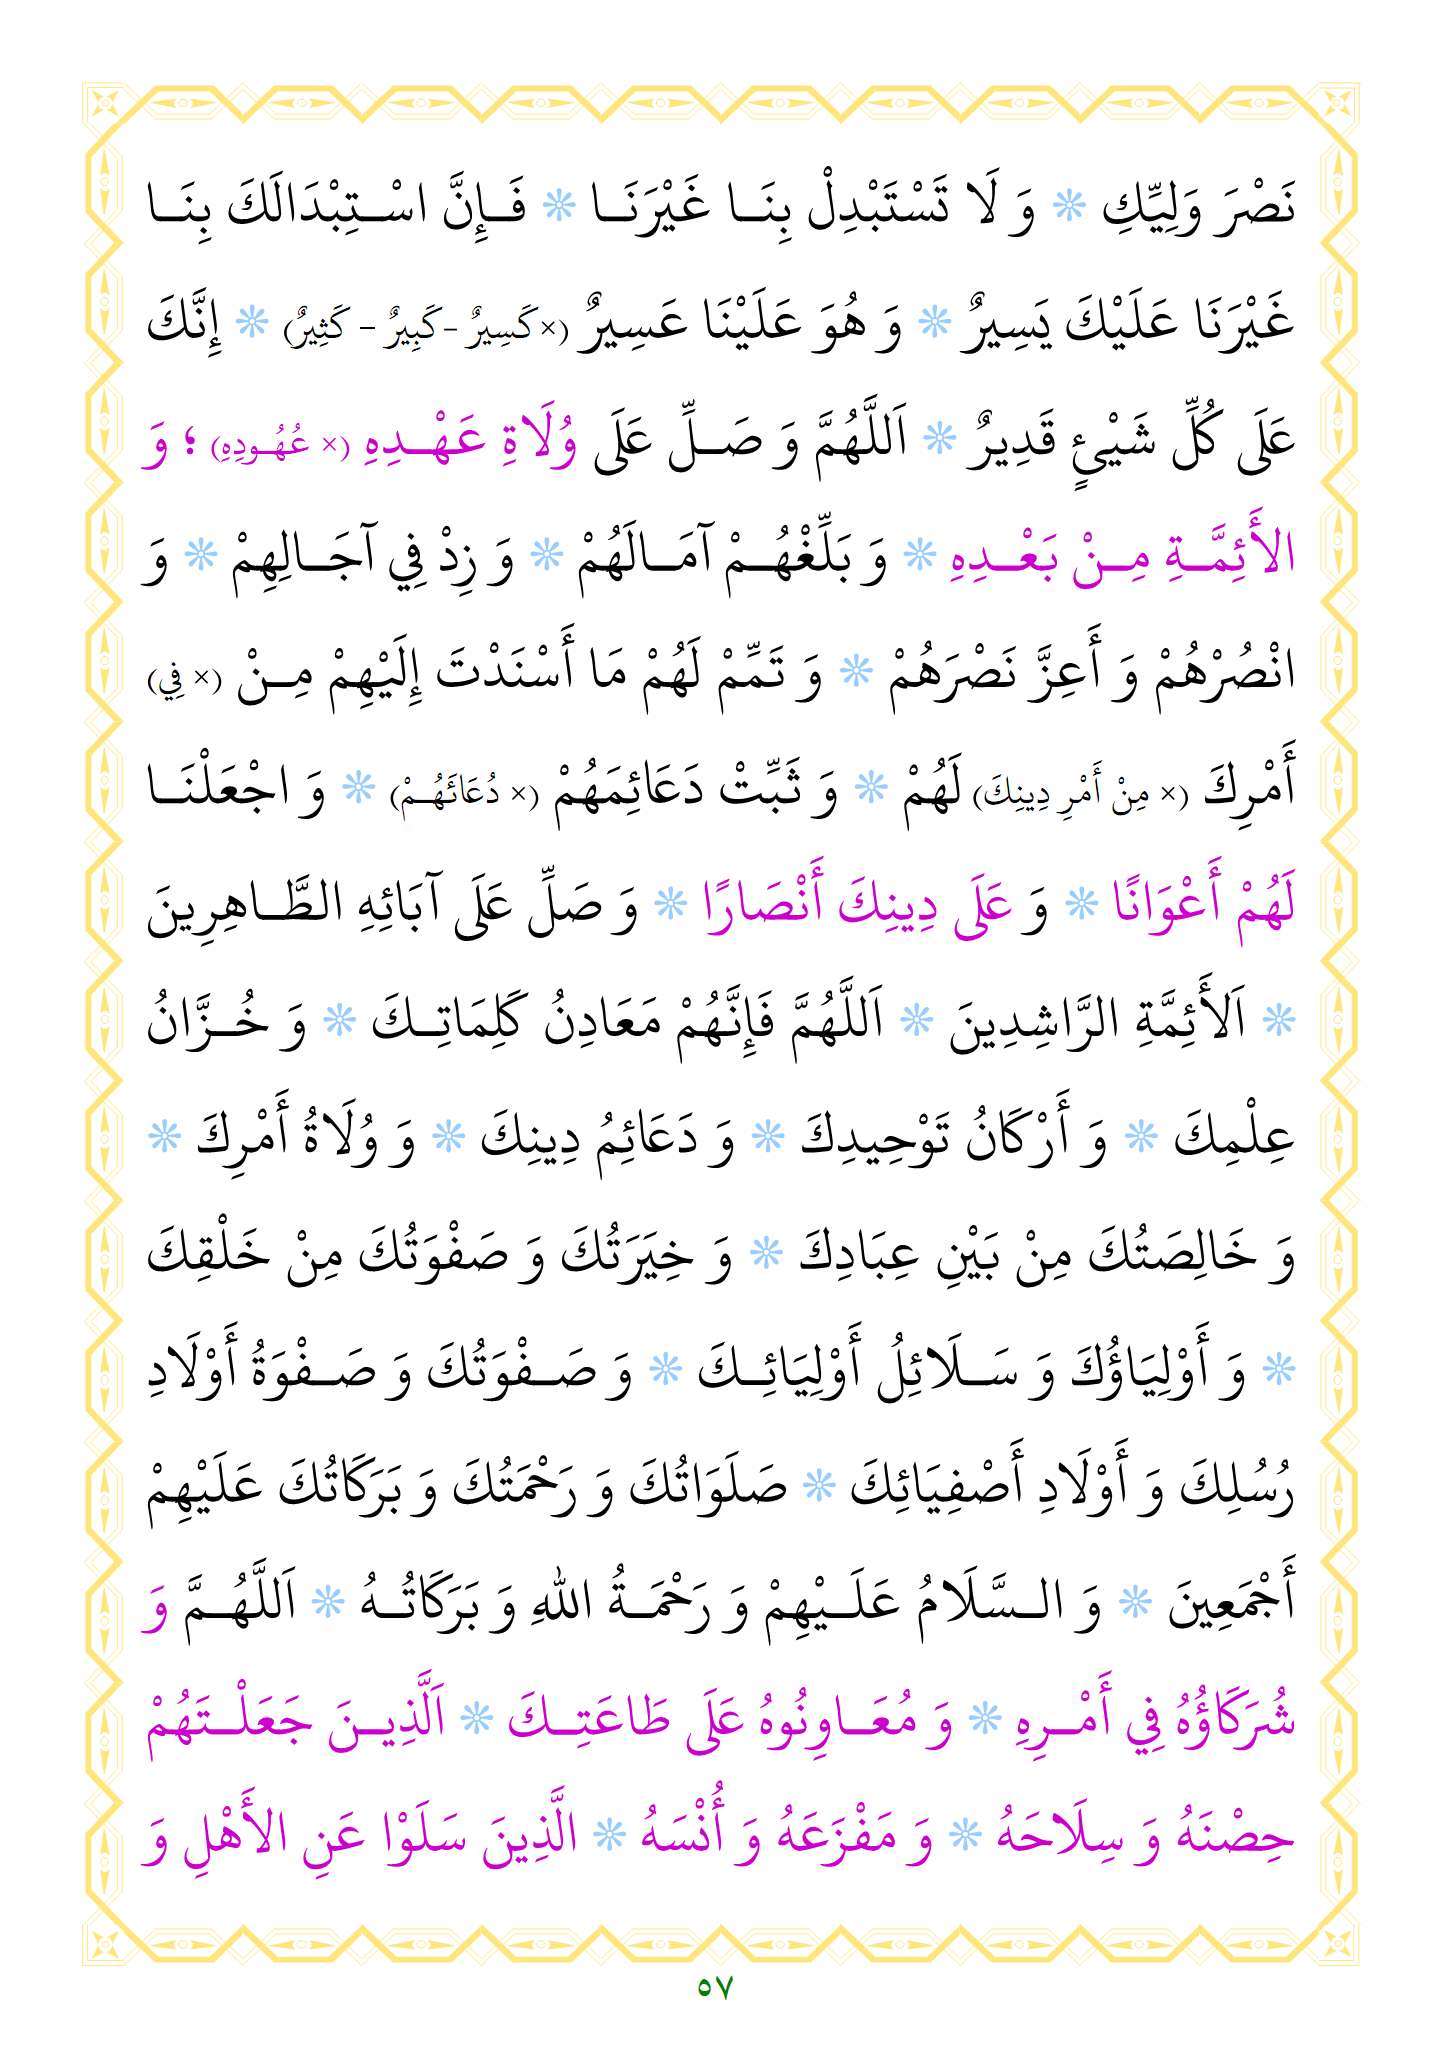 نَصْرَ وَلِيِّكِ ❊ وَ لَا تَسْتَبْدِلْ بِنَـا غَيْرَنَـا ❊ فَـإِنَّ اسْـتِبْدَالَكَ بِنَـا
غَيْرَنَا عَلَيْكَ يَسِيرٌ ❊ وَ هُوَ عَلَيْنَا عَسِيرٌ (×كَسِيرٌ -كَبِيرٌ – كَثِيرٌ) ❊ إِنَّكَ
عَلَى كُلِّ شَيْئٍ قَدِيرٌ ❊ اَللَّهُمَّ وَ صَـلِّ عَلَى وُلَاةِ عَهْـدِهِ (× عُهُـودِهِ) ؛ وَ
الأَئِمَّـةِ مِـنْ بَعْـدِهِ ❊ وَ بَلِّغْهُـمْ آمَـالَهُمْ ❊ وَ زِدْ فِي آجَـالِهِمْ ❊ وَ
انْصُرْهُمْ وَ أَعِزَّ نَصْرَهُمْ ❊ وَ تَمِّمْ لَهُمْ مَا أَسْنَدْتَ إِلَيْهِمْ مِـنْ (× فِي)
أَمْرِكَ (× مِنْ أَمْرِ دِينِكَ) لَهُمْ ❊ وَ ثَبِّتْ دَعَائِمَهُمْ (× دُعَائَهُـمْ) ❊ وَ اجْعَلْنَـا
لَهُمْ أَعْوَانًا ❊ وَ عَلَى دِينِكَ أَنْصَارًا ❊ وَ صَلِّ عَلَى آبَائِهِ الطَّـاهِرِينَ
❊ اَلأَئِمَّةِ الرَّاشِدِينَ ❊ اَللَّهُمَّ فَإِنَّهُمْ مَعَادِنُ كَلِمَاتِـكَ ❊ وَ خُـزَّانُ
عِلْمِكَ ❊ وَ أَرْكَانُ تَوْحِيدِكَ ❊ وَ دَعَائِمُ دِينِكَ ❊ وَ وُلَاةُ أَمْرِكَ ❊
وَ خَالِصَتُكَ مِنْ بَيْنِ عِبَادِكَ ❊ وَ خِيَرَتُكَ وَ صَفْوَتُكَ مِنْ خَلْقِكَ
❊ وَ أَوْلِيَاؤُكَ وَ سَـلَائِلُ أَوْلِيَائِـكَ ❊ وَ صَـفْوَتُكَ وَ صَـفْوَةُ أَوْلَادِ
رُسُلِكَ وَ أَوْلَادِ أَصْفِيَائِكَ ❊ صَلَوَاتُكَ وَ رَحْمَتُكَ وَ بَرَكَاتُكَ عَلَيْهِمْ
أَجْمَعِينَ ❊ وَ الـسَّلَامُ عَلَـيْهِمْ وَ رَحْمَـةُ اللهِ وَ بَرَكَاتُـهُ ❊ اَللَّهُـمَّ وَ
شُرَكَاؤُهُ فِي أَمْـرِهِ ❊ وَ مُعَـاوِنُوهُ عَلَى طَاعَتِـكَ ❊ اَلَّذِيـنَ جَعَلْـتَهُمْ
حِصْنَهُ وَ سِلَاحَهُ ❊ وَ مَفْزَعَهُ وَ أُنْسَهُ ❊ الَّذِينَ سَلَوْا عَنِ الأَهْلِ وَ
٥٧